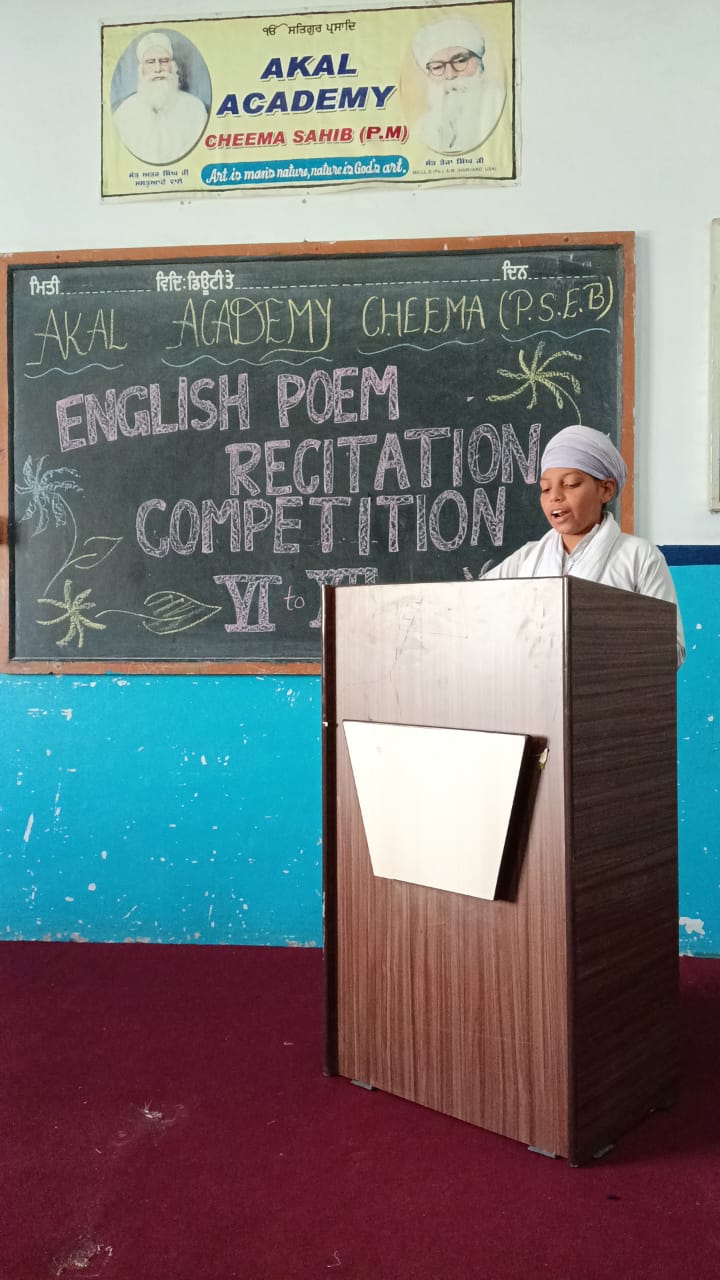 ੴ ਸਤਿਗੁਰ ਪ੍ਰਸਾਦਿ
AKAL
ACADEMY
CHEEMA SAHIB (P.M)
Art is man's nature, nature is God's art.
ਸੰਤ ਅਤਰ ਸਿੰਘ ਜੀ
ਮਸਤੂਆਣੇ ਵਾਲੇ
ਸੰਤ ਤੇਜਾ ਸਿੰਘ ਜੀ
ਮਿਤੀ ਵਿਦਿ: ਡਿਊਟੀ ਤੇ ਦਿਨ
AKAL ACADEMY CHEEMA (P.S.E.B)
ENGLISH POEM
RECITATION
COMPETITION
VI to